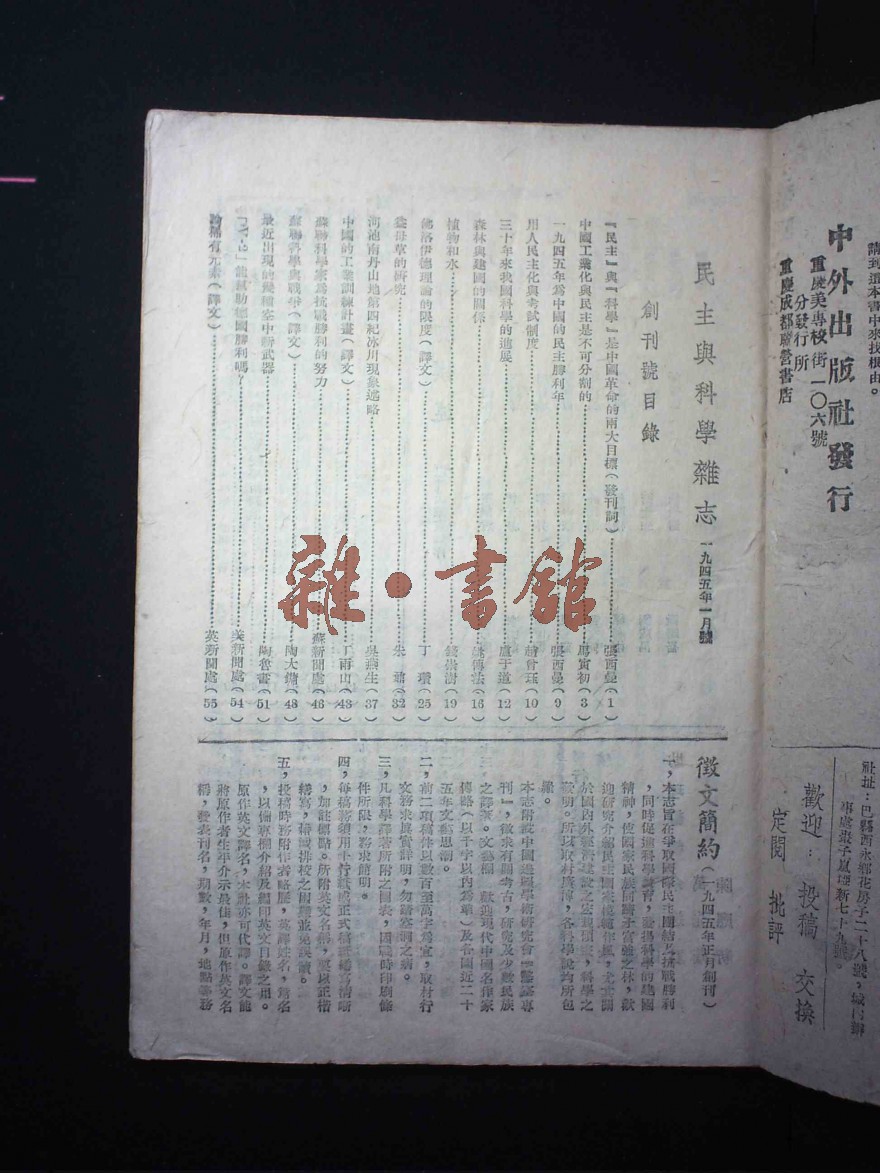 請到這本書中來找根由。
中外出版社發行
重慶美專校街一〇六號
分發行所
重慶成都聯營書店
社址：巴縣西永鄉花房子二十八號，城內辦
事處棗子嵐埡新七十九號。
歡迎：投稿 交換
定閱 批評
民主與科學雜志 一九四五年一月號
創刊號目錄
『民主』與『科學』是中國革命的兩大目標（發刊詞）張西曼（1）
中國工業化與民主是不可分割的 馬寅初（3）
一九四五年為中國的民主勝利年 張西曼（9）
用人民主化與考試制度 趙曾珏（10）
三十年來我國科學的進展 盧于道（12）
森林與建國的關係 姚傳法（16）
植物和水 錢崇澍（19）
佛洛伊德理論的限度（譯文）丁瓚（25）
益母草的研究 朱（32）
河池南丹山地第四紀冰川現象述略 吳燕生（37）
中國的工業訓練計畫（譯文）丁雨山（43）
蘇聯科學家為抗戰勝利的努力 蘇新聞處（46）
蘇聯科學與戰爭（譯文）陶大鏞（48）
最近出現的幾種空中新武器 陶魯書（51）
能幫助德國勝利嗎？ 美新聞處（54）
論稀有元素（譯文）英新聞處（55）
雜·書館
徵文簡約（一九四五年正月創刊）
一，本志旨在爭取國際民主團結及抗戰勝利
，同時促進科學教育，發揚科學的建國
精神，使國家民族同躋于富強之林，歡
迎研究介紹民主國家模範作風，尤其關
於國內外經濟建設之公民憲，科學之
發明。所以取材廣博，各科學說均所包
羅。
本志附設中國邊疆學術研究會『邊疆專
刊』，徵求有關考古，研究及少數民族
之譯著。文藝欄 歡迎現代中國名作家
傳略（以千字以內為率）及各國近二十
五年文藝思潮。
二，前二項稿件以數百至萬字為宜，取材行
文務求真實詳明，勿蹈空洞之病。
三，凡科學譯著所附之圖表，因戰時印刷條
件所限，務求簡明。
四，每稿務須用十行紙或正式稿紙繕寫清晰
，加註標點。所附英文名稱，要以正楷
繕寫，藉減排校之困難並免誤讀。
五，投稿時務附作者略歷，英譯姓名，篇名
，以備專欄介紹及編印英文目錄之用。
原作英文譯名，本社亦可代譯。譯文能
將原作者生平介示最佳，但原作英文名
稱，發表刊名，期數，年月，地點等務